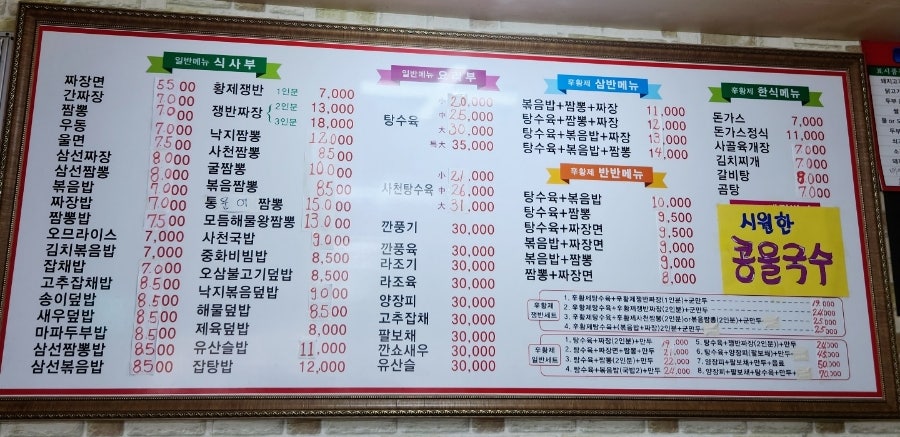 일반메뉴 식사부
짜장면 5500
간짜장 7000
짬뽕 7000
우동 7000
울면 7500
삼선짜장 8000
삼선짬뽕 8000
볶음밥 7000
짜장밥 7000
짬뽕밥 7500
오므라이스 7,000
김치볶음밥 7,000
잡채밥 7000
고추잡채밥 8500
송이덮밥 8500
새우덮밥 8500
마파두부밥 8500
삼선짬뽕밥 8500
삼선볶음밥 8500
황제쟁반 1인분 7,000
쟁반짜장 2인분 13,000
3인분 18,000
낙지짬뽕 12000
사천짬뽕 8500
굴짬뽕 10000
볶음짬뽕 8500
통오이 짬뽕 15000
모듬해물왕짬뽕 13000
사천국밥 9,000
중화비빔밥 8,500
오삼불고기덮밥 8,500
낙지볶음덮밥 9000
해물덮밥 8500
제육덮밥 8,000
유산슬밥 11,000
잡탕밥 12,000
일반메뉴 요리부
탕수육 小 20,000
中 25,000
大 30,000
특大 35,000
사천탕수육 小 21,000
中 26,000
大 31,000
깐풍기 30,000
깐풍육 30,000
라조기 30,000
라조육 30,000
양장피 30,000
고추잡채 30,000
팔보채 30,000
깐쇼새우 30,000
유산슬 30,000
후황제 삼반메뉴
볶음밥+짬뽕+짜장 11,000
탕수육+짬뽕+짜장 12,000
탕수육+볶음밥+짜장 13,000
탕수육+볶음밥+짬뽕 14,000
후황제 반반메뉴
탕수육+볶음밥 10,000
탕수육+짬뽕 9,500
탕수육+짜장면 9,000
볶음밥+짜장면 9,000
볶음밥+짬뽕 9,000
짬뽕+짜장면 8,000
후황제 한식메뉴
돈가스 7,000
돈가스정식 11,000
사골육개장 7000
김치찌개 7000
갈비탕 8000
곰탕 7000
시원한
콩물국수
후황제 쟁반세트
1. 후황제탕수육+후황제쟁반짜장(1인분)+군만두 19,000
2. 후황제탕수육+후황제쟁반짜장(2인분)+군만두 24,000
3. 후황제탕수육+후황제사천짬뽕(2인분)or볶음짬뽕(2인분)+군만두 25,000
4. 후황제탕수육+(볶음밥+짜장)2인분+군만두 25,000
후황제 일반세트
1. 탕수육+짜장(2인분)+만두 19,000
2. 탕수육+짜장면+짬뽕+만두 21,000
3. 탕수육+짬뽕(2인분)+만두 22,000
4. 탕수육+볶음밥(국밥2)+만두 24,000
5. 탕수육+쟁반짜장(2인분)+만두 24,000
6. 탕수육+양장피(팔보채)+만두 48,000
7. 양장피+팔보채+만두+음료 50,000
8. 양장피+팔보채+탕수육+만두 70,000